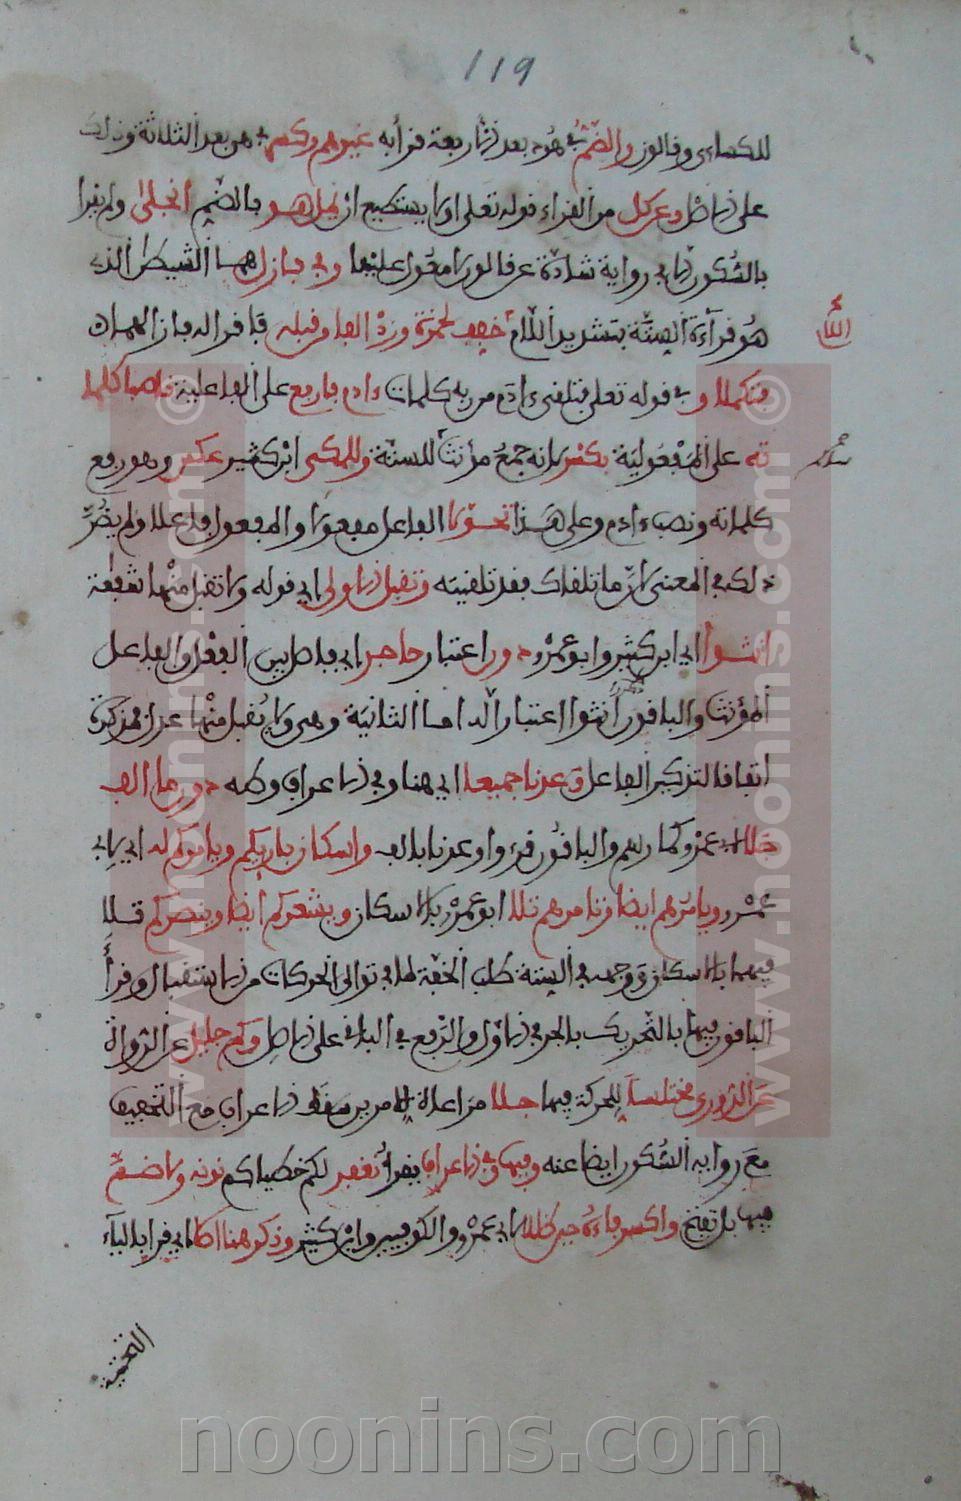 119
للكساءي وقالون والضم في هو بعد ذا اربعة قرأ به غيرهم وكسر في هي بعد الثلاثة وذلك
على الاصل وعن كل من القراء قوله تعلى اولا يستطيع ان يمل هو بالضم انجلى ولم يقرا
بالسكون الا في رواية شاذة عن قالون لا معول عليها وفي فازل هما الشيطن الذي
هو قراءة الستة بتشديد اللام خفف لحمزة وزد الفا من قبله
فتكملا وفي قوله تعلى فتلقى ءادم من ربه كلمات وءادم فارفع على الفاعلية ناصبا كلما
ته على المفعولية بكسر لانه جمع مؤنث للستة وللمكي ابن كثير عكس وهو رفع
كلماته ونصب ءادم وعلى هذا تحولا الفاعل مفعولا والمفعول فاعلا ولم يضر
ذلك في المعنى لان ما تلقاك فقد تلقيته وتقبل الاولى اي قوله ولا تقبل منها شفعة
انثوا اي ابن كثير وابو عمرو دون اعتبار حاجز اي فاصل بين الفعل والفاعل
المؤنث والباقون انثوا اعتبارا له اما الثانية وهي ولا يقبل منها عدل فمذكرة
اتفاقا لتذكير الفاعل وعدنا جميعا اي هنا وفي الاعراف وطه دون ما الف
حلا لابي عمرو كما رسم والباقون قرءوا وعدنا بالف واسكان بارئكم ويامركم له اي لابي
عمرو ويامرهم ايضا وتامرهم تلا ابو عمرو بالاسكان ويشعركم ايضا وينصركم تلا
فيهما بالاسكان ووجهه في الستة طلب الخفة لما في توالي الحركات من الاستثقال وقرأ
الباقون فيها بالتحريك بالجر في الاول والرفع في الباقي على الاصل وكم جليل عن الرواة
عن الدوري مختلسا للحركة فيها جلا مراعاة الامرين
مع رواية السكون ايضا عنه وفيها وفي الاعراف يقرأ نغفر لكم خطياكم نونه ولا ضم
فيها بل تفتح واكسر فاءه حين ظلل لابي عمرو والكوفيين وابن كثير وذكر هنا اصلا اي قرا بالياء
الله
noonins.com
www.noonins.com ©
www.noonins.com ©